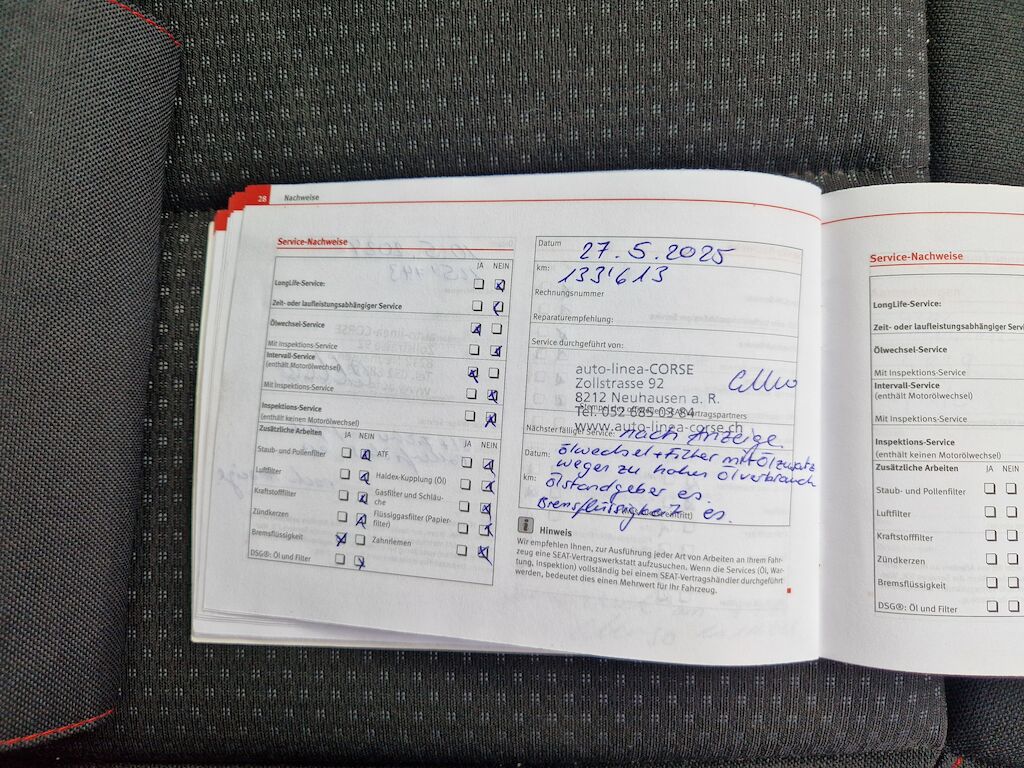 28 Nachweise
Service-Nachweise
JA NEIN
LongLife-Service:
Zeit- oder laufleistungsabhängiger Service
Ölwechsel-Service
Mit Inspektions-Service
Intervall-Service
(enthält Motorölwechsel)
Mit Inspektions-Service
Inspektions-Service
(enthält keinen Motorölwechsel)
Zusätzliche Arbeiten JA NEIN JA NEIN
Staub- und Pollenfilter ATF
Luftfilter Haldex-Kupplung (Öl)
Kraftstofffilter Gasfilter und Schläu-
che
Zündkerzen Flüssiggasfilter (Papier-
filter)
Bremsflüssigkeit Zahnriemen
DSG®: Öl und Filter
Datum 27.5.2025
km: 133'613
Rechnungsnummer
Reparaturempfehlung:
Service durchgeführt von:
auto-linea-CORSE
Zollstrasse 92
8212 Neuhausen a. R.
Tel. 052 685 03 84
Vertragspartners
www.auto-linea-corse.ch
Nächster fälliger Service: nach Anzeige.
Datum: Ölwechsel+Filter mit Ölzusatz
wegen zu hohen Ölverbrauch
km: Ölstandgeber es.
Bremsflüssigkeit es.
Hinweis
Wir empfehlen Ihnen, zur Ausführung jeder Art von Arbeiten an Ihrem Fahr-
zeug eine SEAT-Vertragswerkstatt aufzusuchen. Wenn die Services (Öl, War-
tung, Inspektion) vollständig bei einem SEAT-Vertragshändler durchgeführt
werden, bedeutet dies einen Mehrwert für Ihr Fahrzeug.
Service-Nachweise
LongLife-Service:
Zeit- oder laufleistungsabhängiger Service
Ölwechsel-Service
Mit Inspektions-Service
Intervall-Service
(enthält Motorölwechsel)
Mit Inspektions-Service
Inspektions-Service
(enthält keinen Motorölwechsel)
Zusätzliche Arbeiten JA NEIN
Staub- und Pollenfilter
Luftfilter
Kraftstofffilter
Zündkerzen
Bremsflüssigkeit
DSG®: Öl und Filter